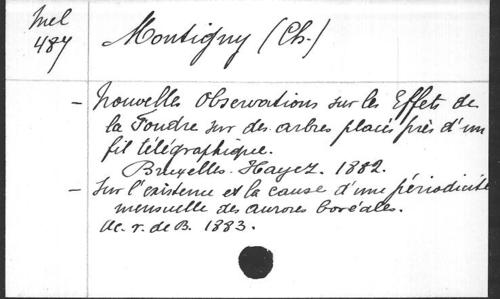 Mel
487
Montigny (Ch.)
- Nouvelles Observations sur les Effets de
la Foudre sur des arbres placés près d'un
fil télégraphique.
Bruxelles. Hayez. 1882.
- Sur l'existence et la cause d'une périodicité
mensuelle des aurores boréales.
Ac. r. de B. 1883.